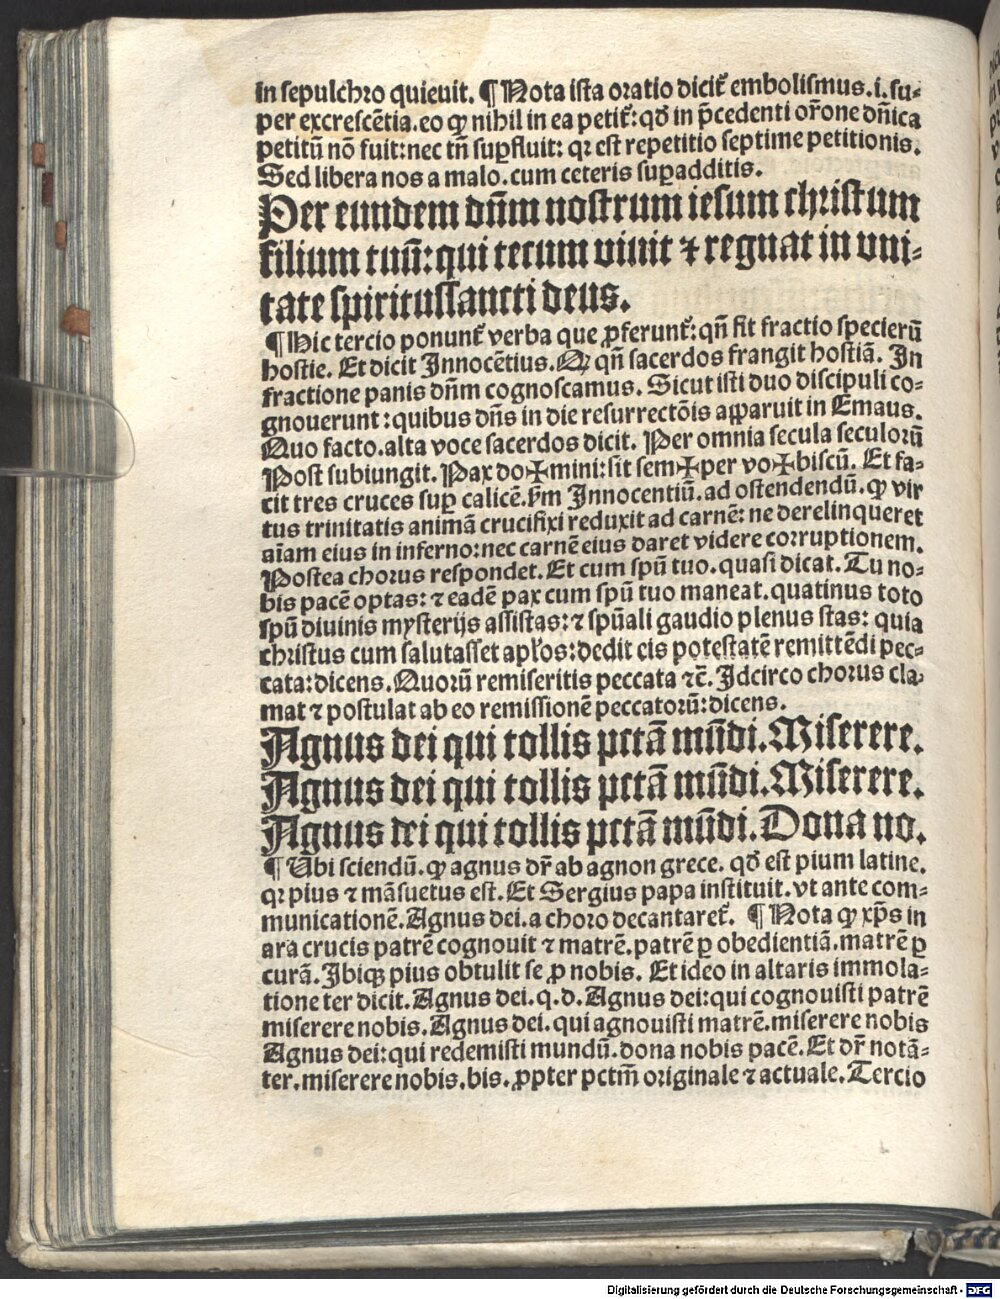 in sepulchro quieuit. ¶ Nota ista oratio dicit᷑ embolismus.i.su⸗
per excrescẽtia.eo ꝙ nihil in ea petit᷑: qđ in p̃cedenti or̃one dñica
petitũ nõ fuit: nec tñ sup̱fluit: qꝛ est repetitio septime petitionis.
Sed libera nos a malo. cum ceteris sup̱additis.
Per eundem dñm nostrum iesum christum
filium tuũ: qui tecum viuit ⁊ regnat in vni⸗
tate spiritussancti deus.
¶ Hic tercio ponunt᷑ verba que ꝓferunt᷑: qñ fit fractio specierũ
hostie. Et dicit Innocẽtius. Q qñ sacerdos frangit hostiã. In
fractione panis dñm cognoscamus. Sicut isti duo discipuli co⸗
gnouerunt: quibus dñs in die resurrectõis aꝑparuit in Emaus.
Quo facto. alta voce sacerdos dicit. Per omnia secula seculorũ
Post subiungit. Pax do✠mini: sit sem✠per vo✠biscũ. Et fa⸗
cit tres cruces suꝑ calicẽ. ẜm Innocentiũ. ad ostendendũ. ꝙ vir
tus trinitatis animã crucifixi reduxit ad carnẽ: ne derelinqueret
aĩam eius in inferno: nec carnẽ eius daret videre corruptionem.
Postea chorus respondet. Et cum spũ tuo. quasi dicat. Tu no⸗
bis pacẽ optas: ⁊ eadẽ pax cum spũ tuo maneat. quatinus toto
spũ diuinis mysterijs assistas: ⁊ spũali gaudio plenus stas: quia
christus cum salutasset apl̃os: dedit eis potestatẽ remittẽdi pec⸗
cata: dicens. Quorũ remiseritis peccata ⁊c̃. Idcirco chorus cla⸗
mat ⁊ postulat ab eo remissionẽ peccatorũ: dicens.
Agnus dei qui tollis pctã mũdi. Miserere.
Agnus dei qui tollis pctã mũdi. Miserere.
Agnus dei qui tollis pctã mũdi. Dona no.
¶ Ubi sciendũ. ꝙ agnus dr̃ ab agnon grece. qđ est pium latine.
qꝛ pius ⁊ mãsuetus est. Et Sergius papa instituit. vt ante com⸗
municationẽ. Agnus dei. a choro decantaret᷑. ¶ Nota ꝙ xp̃s in
ara crucis patrẽ cognouit ⁊ matrẽ. patrẽ ꝑ obedientiã. matrẽ ꝑ
curã. Ibiqꝫ pius obtulit se ꝓ nobis. Et ideo in altaris immola⸗
tione ter dicit. Agnus dei. q.d. Agnus dei: qui cognouisti patrẽ
miserere nobis. Agnus dei. qui agnouisti matrẽ. miserere nobis
Agnus dei: qui redemisti mundũ. dona nobis pacẽ. Et dr̃ notã⸗
ter. miserere nobis. bis. ꝓpter pctm̃ originale ⁊ actuale. Tercio
Digitalisierung gefördert durch die Deutsche Forschungsgemeinschaft - DFG